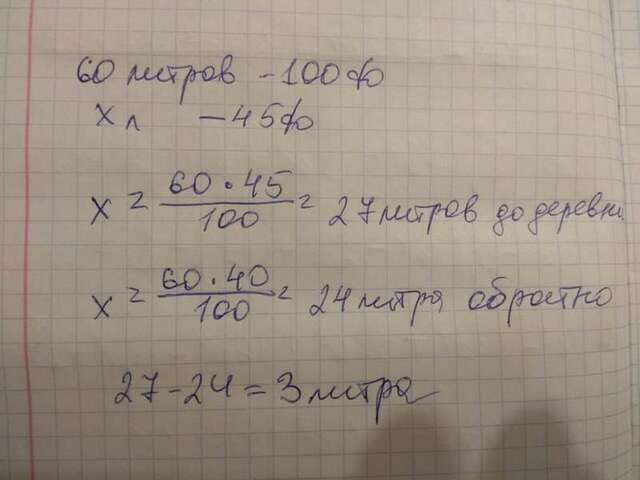 60 литров - 100%
х л - 45%
х = 60 · 45 / 100 = 27 литров до деревни
х = 60 · 40 / 100 = 24 литра обратно
27 - 24 = 3 литра